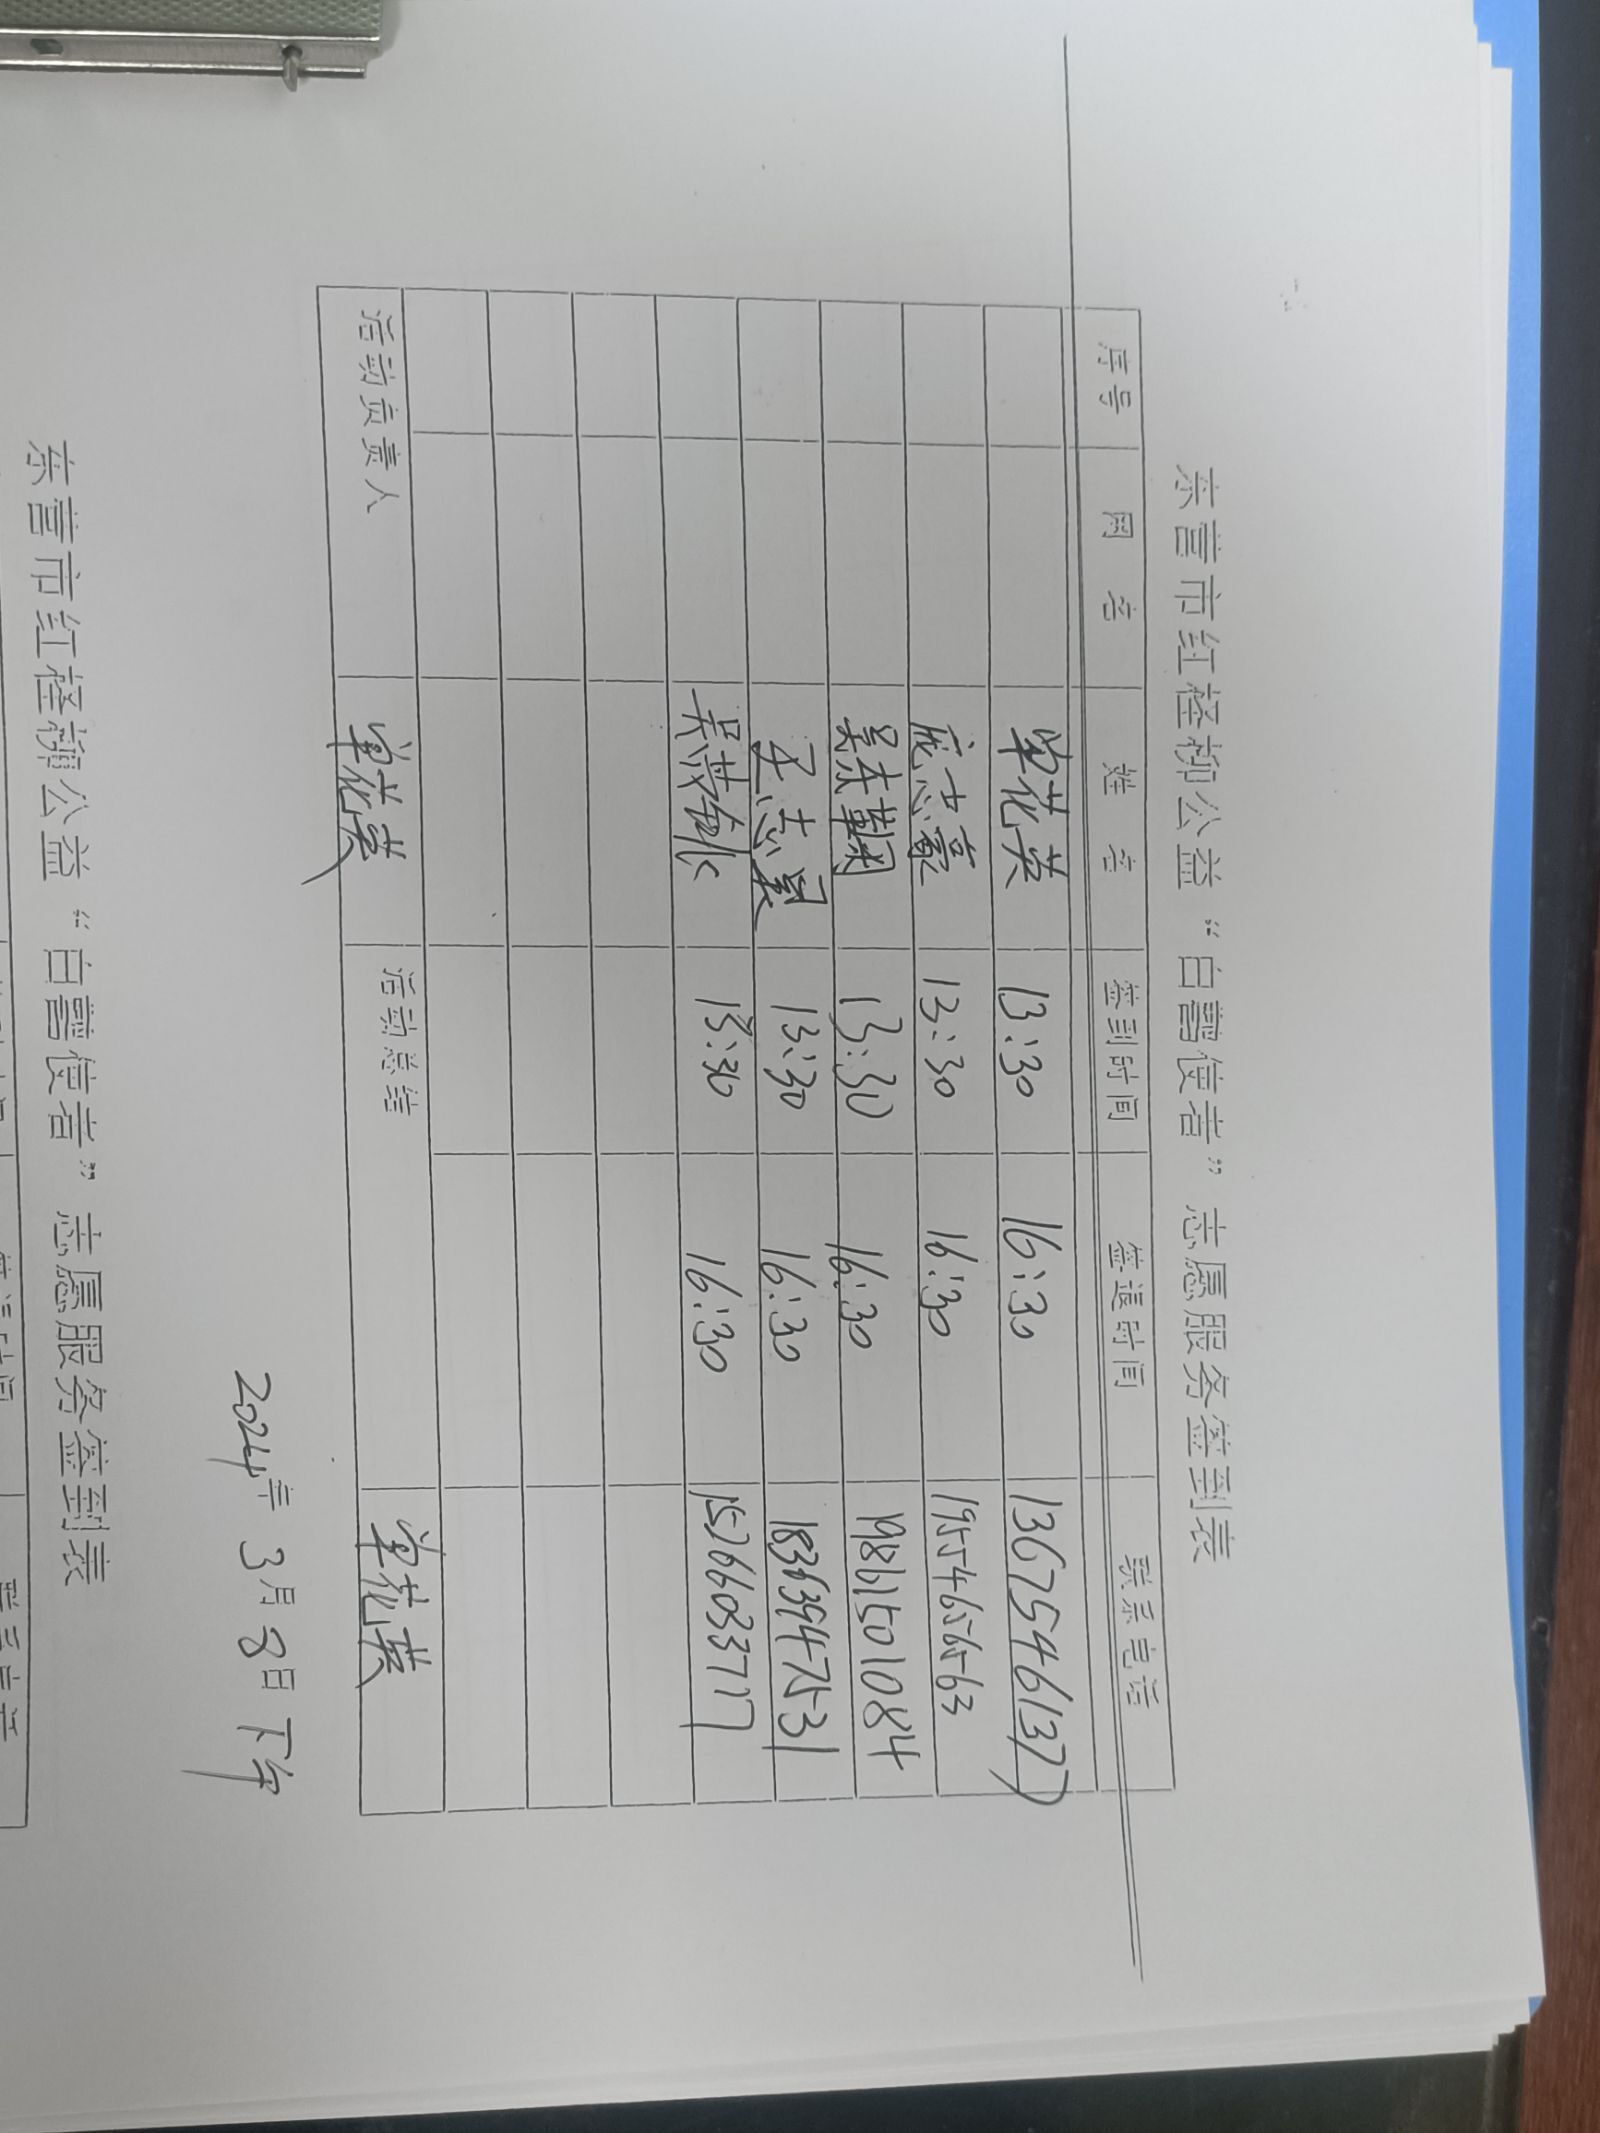 东营市红柽柳公益“白鹭使者”志愿服务签到表
序号 网名 姓名 签到时间 签退时间 联系电话
单花英 13:30 16:30 13675461377
庞志豪 13:30 16:30 19554656563
吴东 13:30 16:30 19861501084
王志 13:30 16:30 18363947531
吴燕 13:30 16:30 15266033717
活动负责人 单花英 活动总结 单花英
2024年 3月8日下午
东营市红柽柳公益“白鹭使者”志愿服务签到表